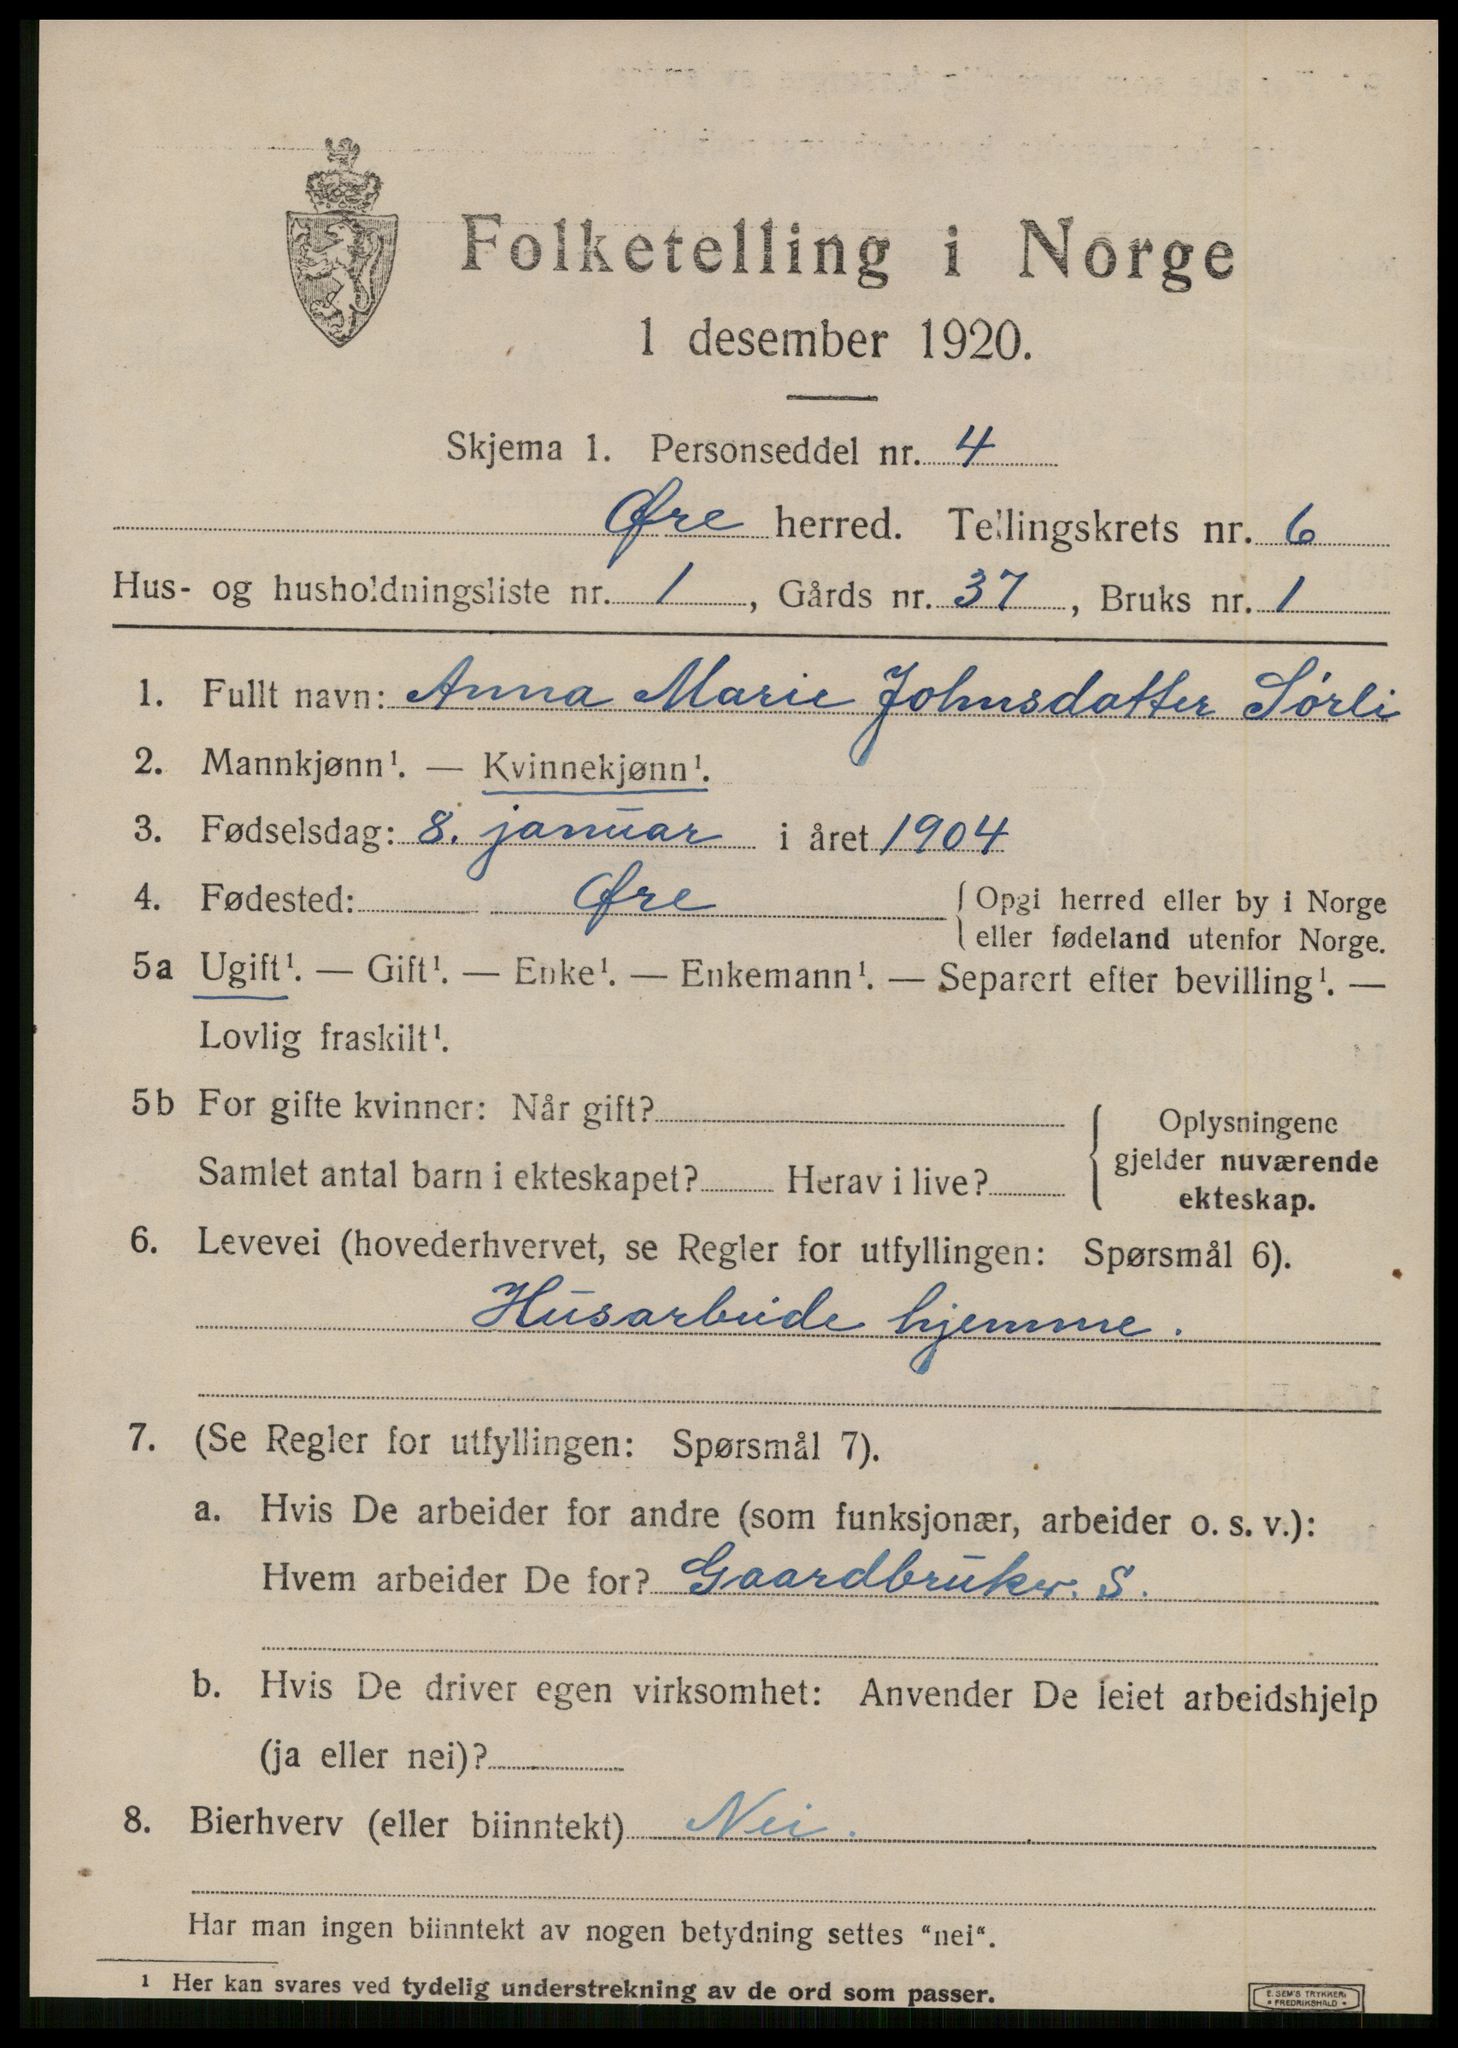 Folketelling i Norge
1 desember 1920.
Skjema 1. Personseddel nr. 4
Øre herred. Tellingskrets nr. 6
Hus- og husholdningsliste nr. 1, Gårds nr. 37, Bruks nr. 1
1. Fullt navn: Anna Marie Johnsdatter Sörli
2. Mannkjønn¹. — Kvinnekjønn¹.
3. Fødselsdag: 8. januar i året 1904
4. Fødested: Øre { Opgi herred eller by i Norge
eller fødeland utenfor Norge.
5a Ugift¹. — Gift¹. — Enke¹. — Enkemann¹. — Separert efter bevilling¹. —
Lovlig fraskilt¹.
5b For gifte kvinner: Når gift?
Samlet antal barn i ekteskapet? Herav i live?
Oplysningene
gjelder nuværende
ekteskap.
6. Levevei (hovederhvervet, se Regler for utfyllingen: Spørsmål 6).
Husarbeide hjemme.
7. (Se Regler for utfyllingen: Spørsmål 7).
a. Hvis De arbeider for andre (som funksjonær, arbeider o. s. v.):
Hvem arbeider De for? Gaardbruker. S.
b. Hvis De driver egen virksomhet: Anvender De leiet arbeidshjelp
(ja eller nei)?
8. Bierhverv (eller biinntekt) Nei.
Har man ingen biinntekt av nogen betydning settes “nei“.
¹ Her kan svares ved tydelig understrekning av de ord som passer.
E. SEM'S TRYKKERI
FREDRIKSHALD